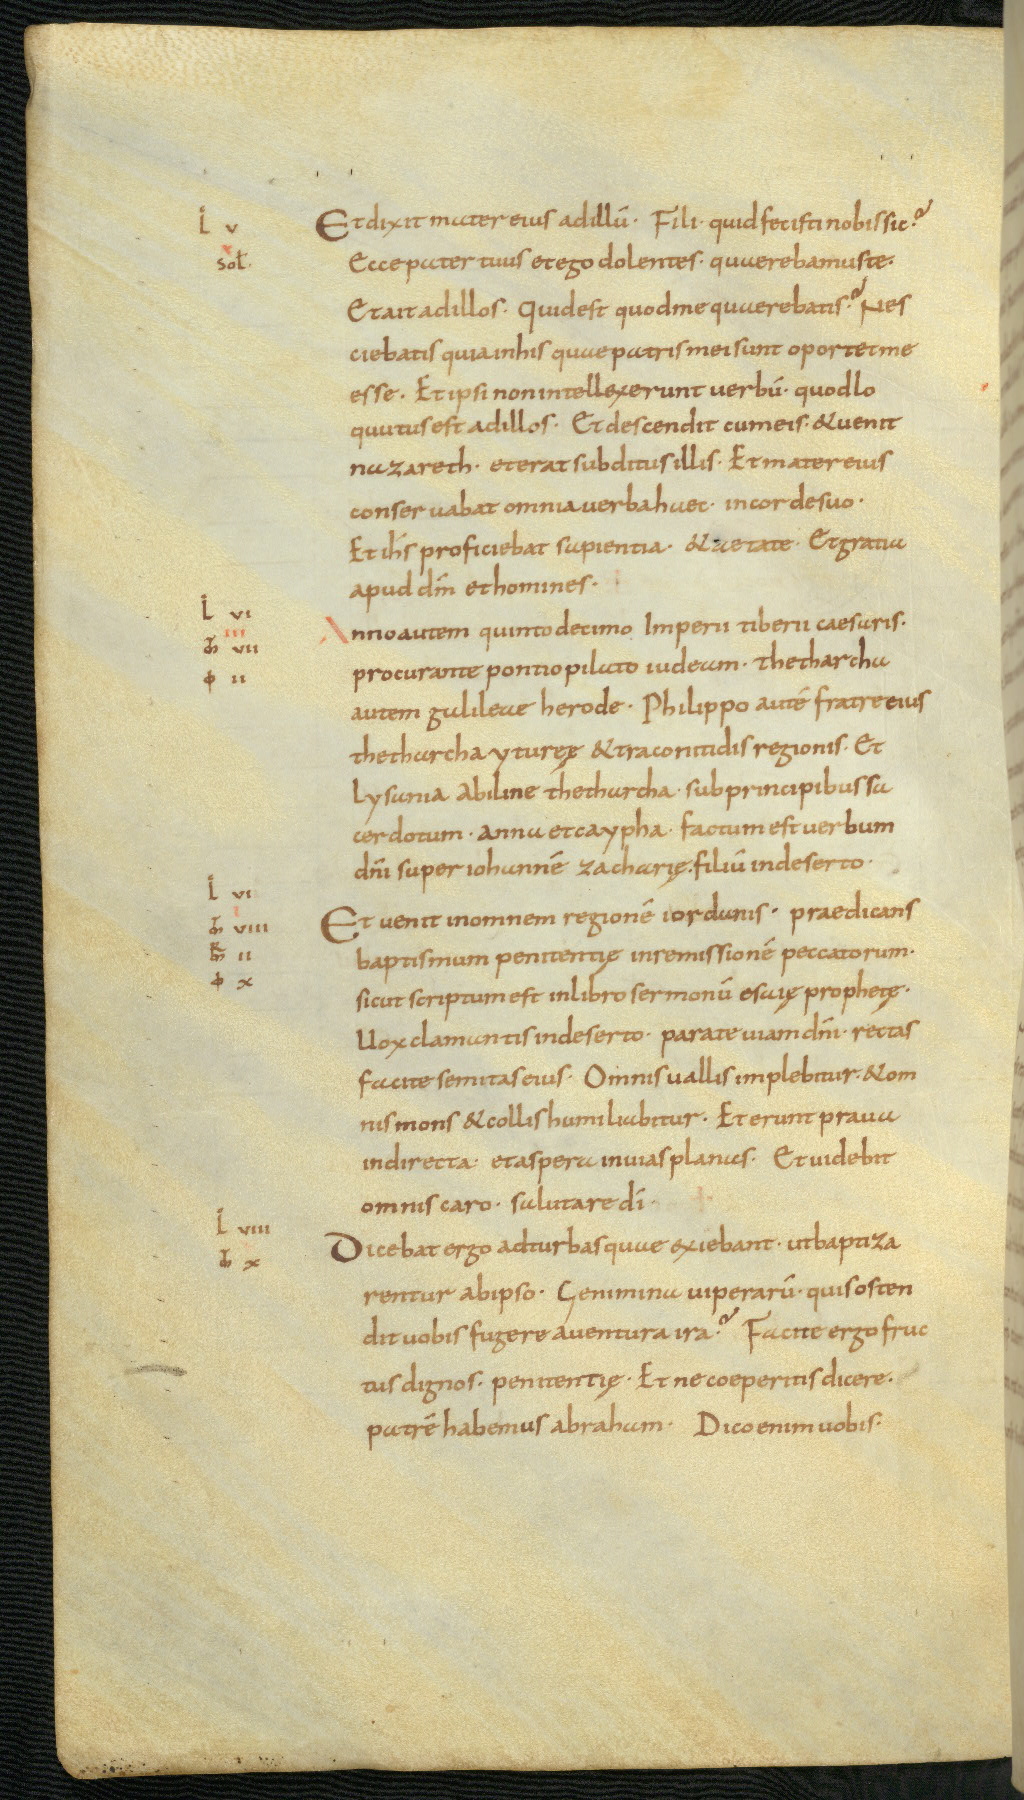 L v
Et dixit mater eius ad illū· Fili· quid fecisti nobis sic?
sol·
Ecce pater tuus et ego dolentes· quaerebamus te·
Et ait ad illos· Quid est quod me quaerebatis? Nes
ciebatis quia in his quae patris mei sunt oportet me
esse· Et ipsi non intellexerunt verbū· quod lo
quutus est ad illos· Et descendit cum eis· & uenit
nazareth· et erat subditus illis· Et mater eius
conseruabat omnia uerba haec· in corde suo·
Et ih̄s proficiebat sapientia· & aetate· Et gratia
apud dm̄ et homines·
L vi
iii
Anno autem quinto decimo Imperii tiberii caesaris·
m̄ vii
procurante pontio pilato iudeam· thetharcha
φ ii
autem galileae herode· Philippo autē fratre eius
thetharcha yturęę & traconitidis regionis· Et
Lysania Abiline thetharcha· sub principibus sa
cerdotum· anna et caypha· factum est uerbum
dn̄i super iohannē zacharię· filiū in deserto·
L vi
i
Et uenit in omnem regionē iordanis· praedicans
m̄ viii
baptismum penitentię in remissionē peccatorum·
m̄ ii
sicut scriptum est in libro sermonū esaię prophetę·
φ x
Uox clamantis in deserto· parate uiam dn̄i· rectas
facite semitas eius· Omnis uallis implebitur· & om
nis mons & collis humiliabitur· Et erunt praua
in directa· et aspera in uias planas· Et uidebit
omnis caro· salutare dī·
L viii
Dicebat ergo ad turbas quae exiebant· ut baptiza
m̄ x
rentur ab ipso· Genimina uiperarū· quis osten
dit uobis fugere a uentura ira? Facite ergo fruc
tus dignos· penitentię· Et ne coeperitis dicere·
patrē habemus abraham· Dico enim uobis·